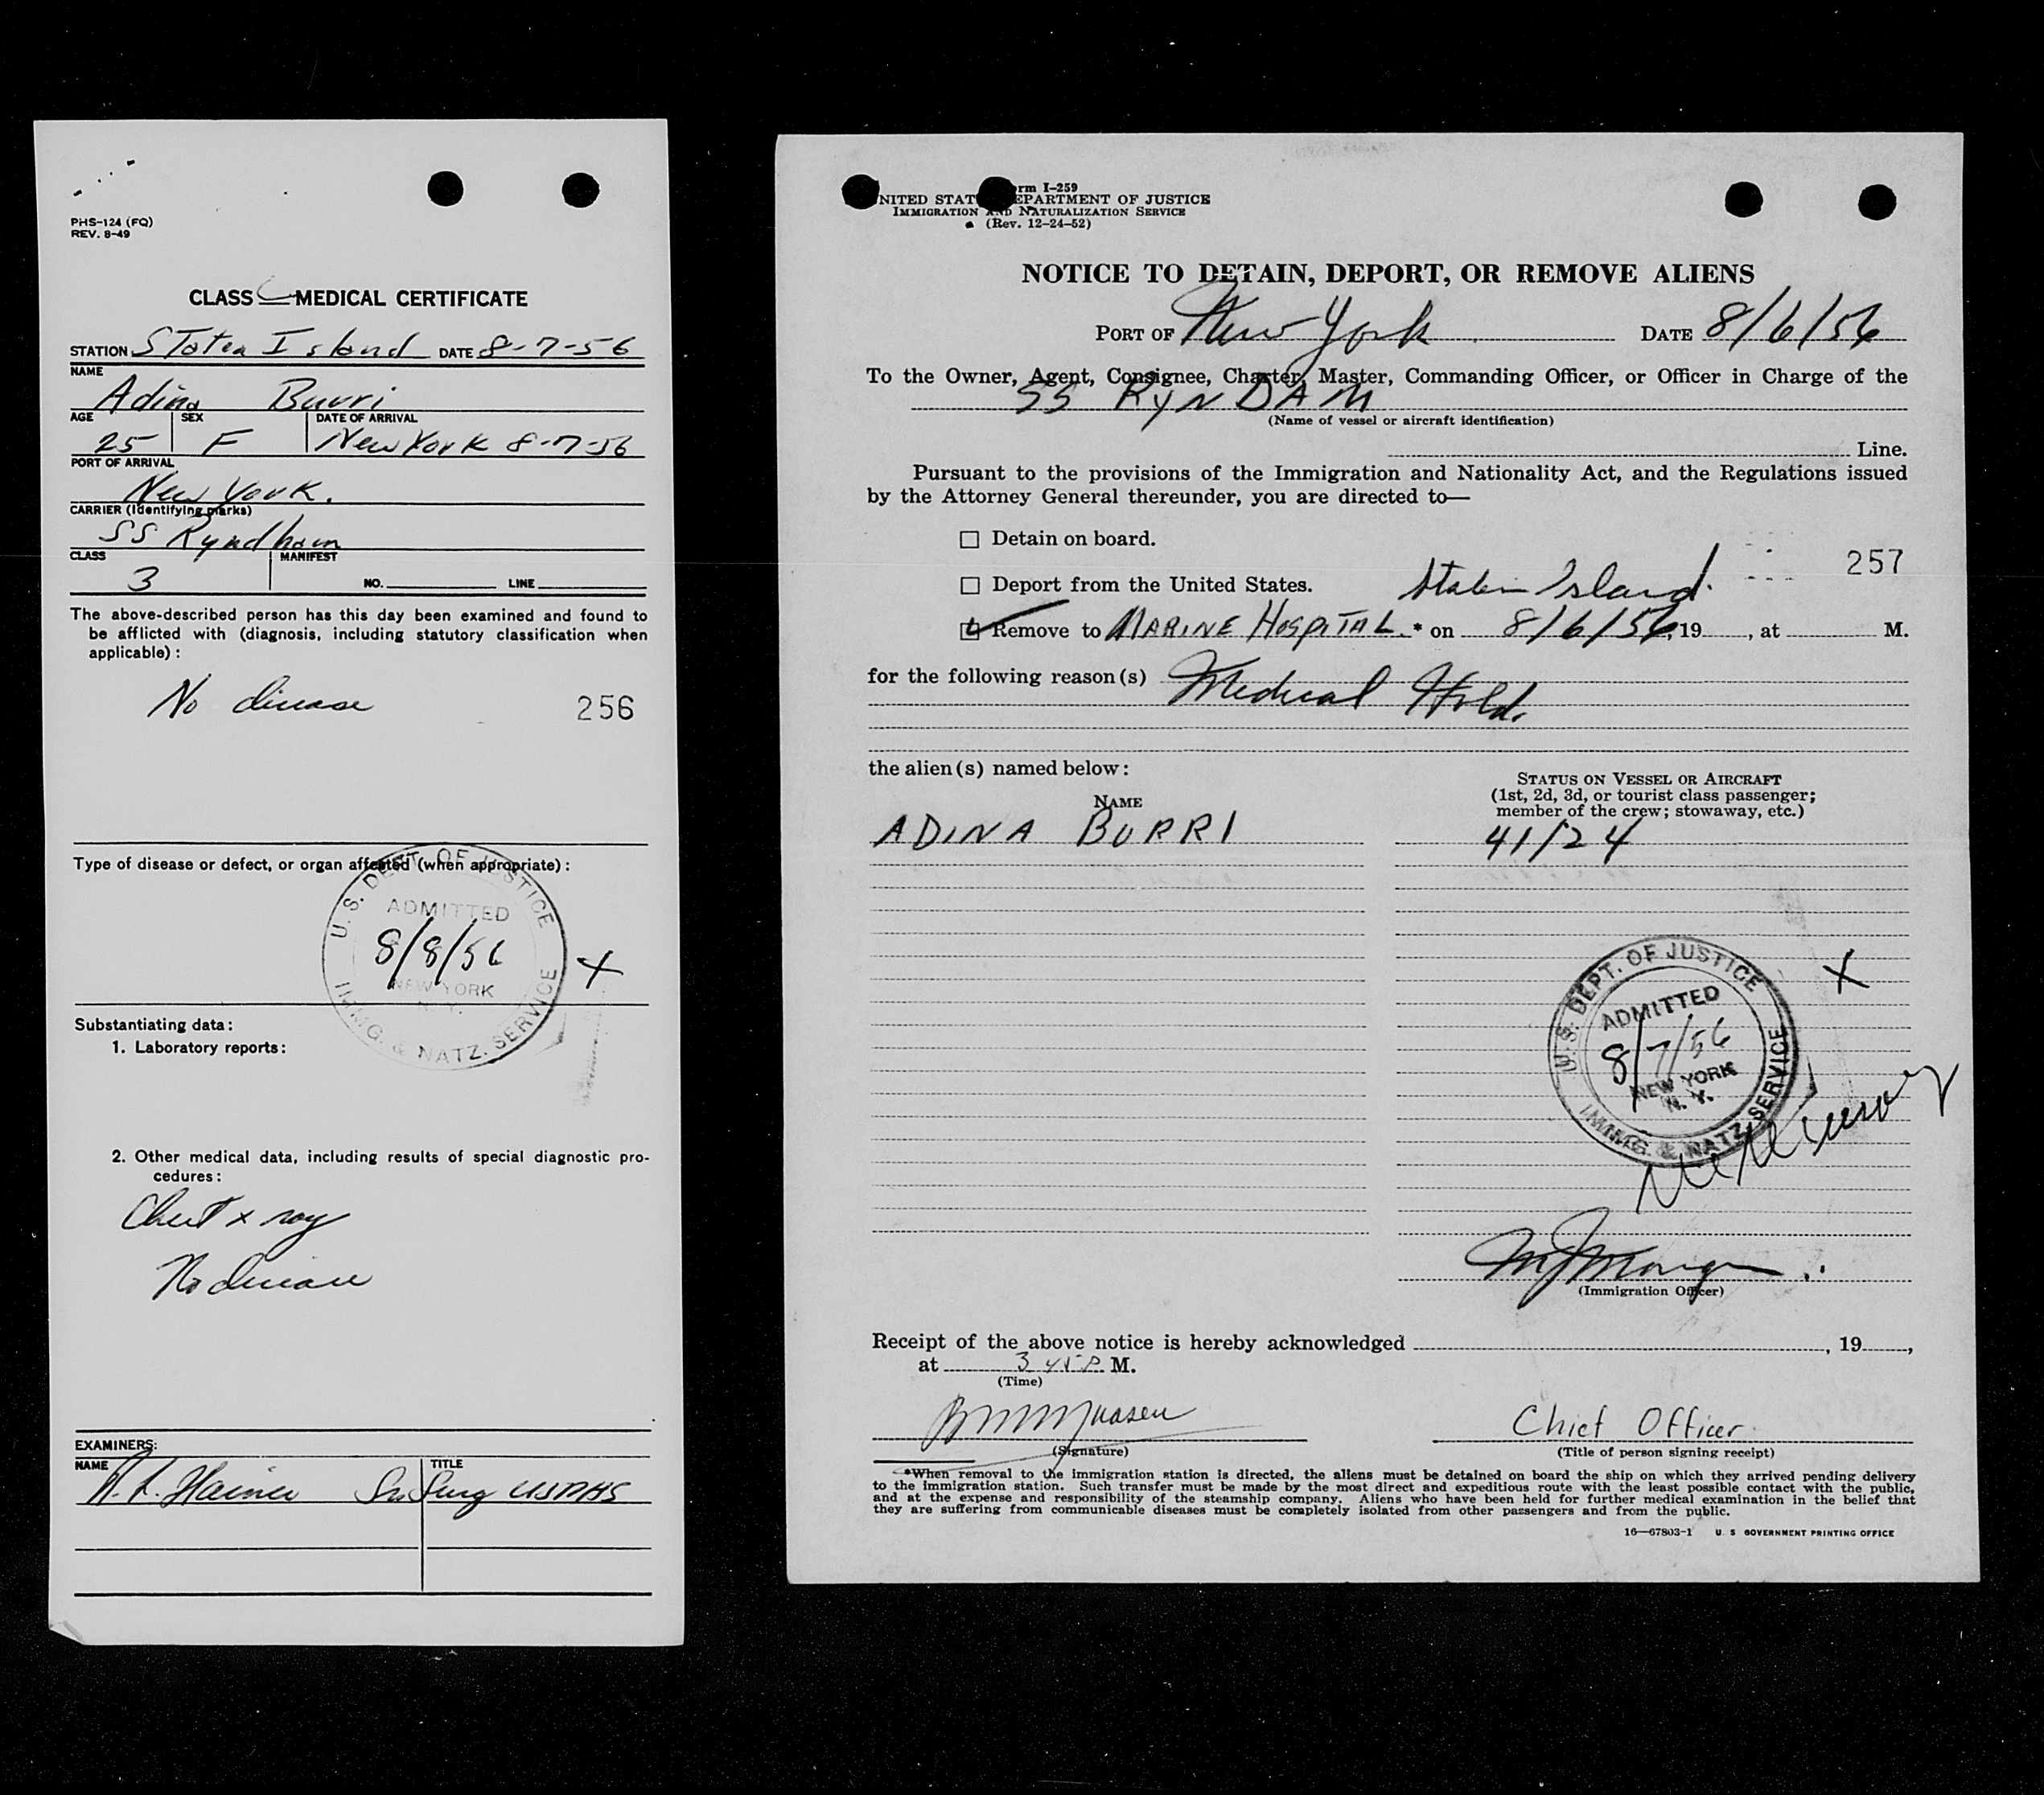 PHS-124 (FQ)
REV. 8-49
CLASS C MEDICAL CERTIFICATE
STATION Staten Island DATE 8-7-56
NAME
Adina Burri
AGE SEX DATE OF ARRIVAL
25 F New York 8-7-56
PORT OF ARRIVAL
New York.
CARRIER (Identifying marks)
SS Ryndham
CLASS MANIFEST
3 NO. LINE
The above-described person has this day been examined and found to
be afflicted with (diagnosis, including statutory classification when
applicable):
No disease 256
Type of disease or defect, or organ affected (when appropriate):
U.S. DEPT. OF JUSTICE
ADMITTED
8/8/56 X
NEW YORK
N.Y.
IMMG. & NATZ. SERVICE
Substantiating data:
1. Laboratory reports:
2. Other medical data, including results of special diagnostic pro-
cedures:
Chest x ray
No disease
EXAMINERS:
NAME TITLE
Surg USPHS
rm I-259
NITED STAT EPARTMENT OF JUSTICE
IMMIGRATION AND NATURALIZATION SERVICE
(Rev. 12-24-52)
NOTICE TO DETAIN, DEPORT, OR REMOVE ALIENS
PORT OF New York DATE 8/6/56
To the Owner, Agent, Consignee, Charter, Master, Commanding Officer, or Officer in Charge of the
SS RYNDAM
(Name of vessel or aircraft identification)
Line.
Pursuant to the provisions of the Immigration and Nationality Act, and the Regulations issued
by the Attorney General thereunder, you are directed to—
Detain on board.
257
Deport from the United States. Staten Island.
Remove to MARINE HOSPITAL.* on 8/6/56, 19 , at M.
for the following reason(s) Medical Hold.
the alien(s) named below:
STATUS ON VESSEL OR AIRCRAFT
(1st, 2d, 3d, or tourist class passenger;
member of the crew; stowaway, etc.)
NAME
ADINA BURRI 41/24
U.S. DEPT. OF JUSTICE
ADMITTED X
8/7/56
NEW YORK
N.Y.
IMMG. & NATZ. SERVICE
(Immigration Officer)
Receipt of the above notice is hereby acknowledged , 19 ,
at 3 45 P. M.
(Time)
Chief Officer
(Signature) (Title of person signing receipt)
*When removal to the immigration station is directed, the aliens must be detained on board the ship on which they arrived pending delivery
to the immigration station. Such transfer must be made by the most direct and expeditious route with the least possible contact with the public,
and at the expense and responsibility of the steamship company. Aliens who have been held for further medical examination in the belief that
they are suffering from communicable diseases must be completely isolated from other passengers and from the public.
16—67803-1 U. S GOVERNMENT PRINTING OFFICE